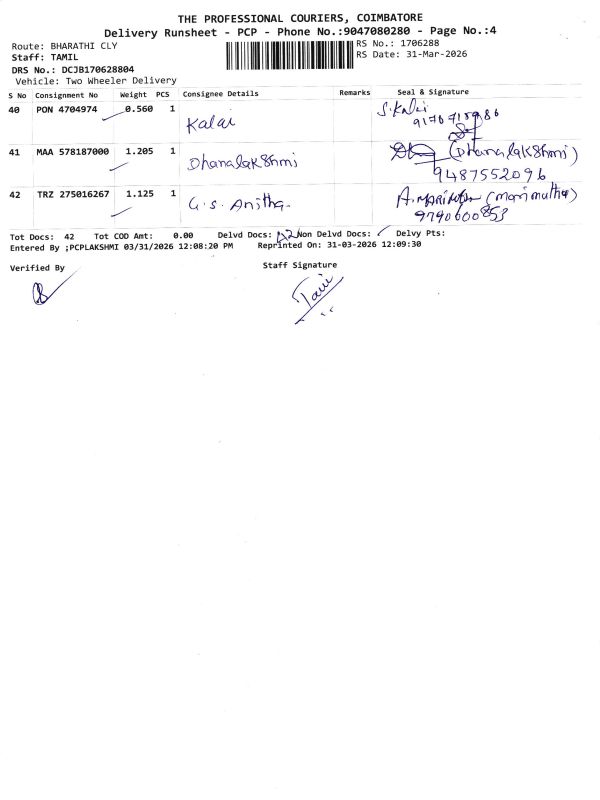 THE PROFESSIONAL COURIERS, COIMBATORE
Delivery Runsheet - PCP - Phone No.:9047080280 - Page No.:4
Route: BHARATHI CLY
RS No.: 1706288
Staff: TAMIL
RS Date: 31-Mar-2026
DRS No.: DCJB170628804
Vehicle: Two Wheeler Delivery
S No Consignment No Weight PCS Consignee Details Remarks Seal & Signature
40 PON 4704974 0.560 1 Kalai S.Kalai
41 MAA 578187000 1.205 1 Dhanalakshmi (Dhanalakshmi)
9487552096
42 TRZ 275016267 1.125 1 G.S. Anitha. (marimuthu)
9790600853
Tot Docs: 42 Tot COD Amt: 0.00 Delvd Docs: 42 Non Delvd Docs: Delvy Pts:
Entered By ;PCPLAKSHMI 03/31/2026 12:08:20 PM Reprinted On: 31-03-2026 12:09:30
Verified By Staff Signature